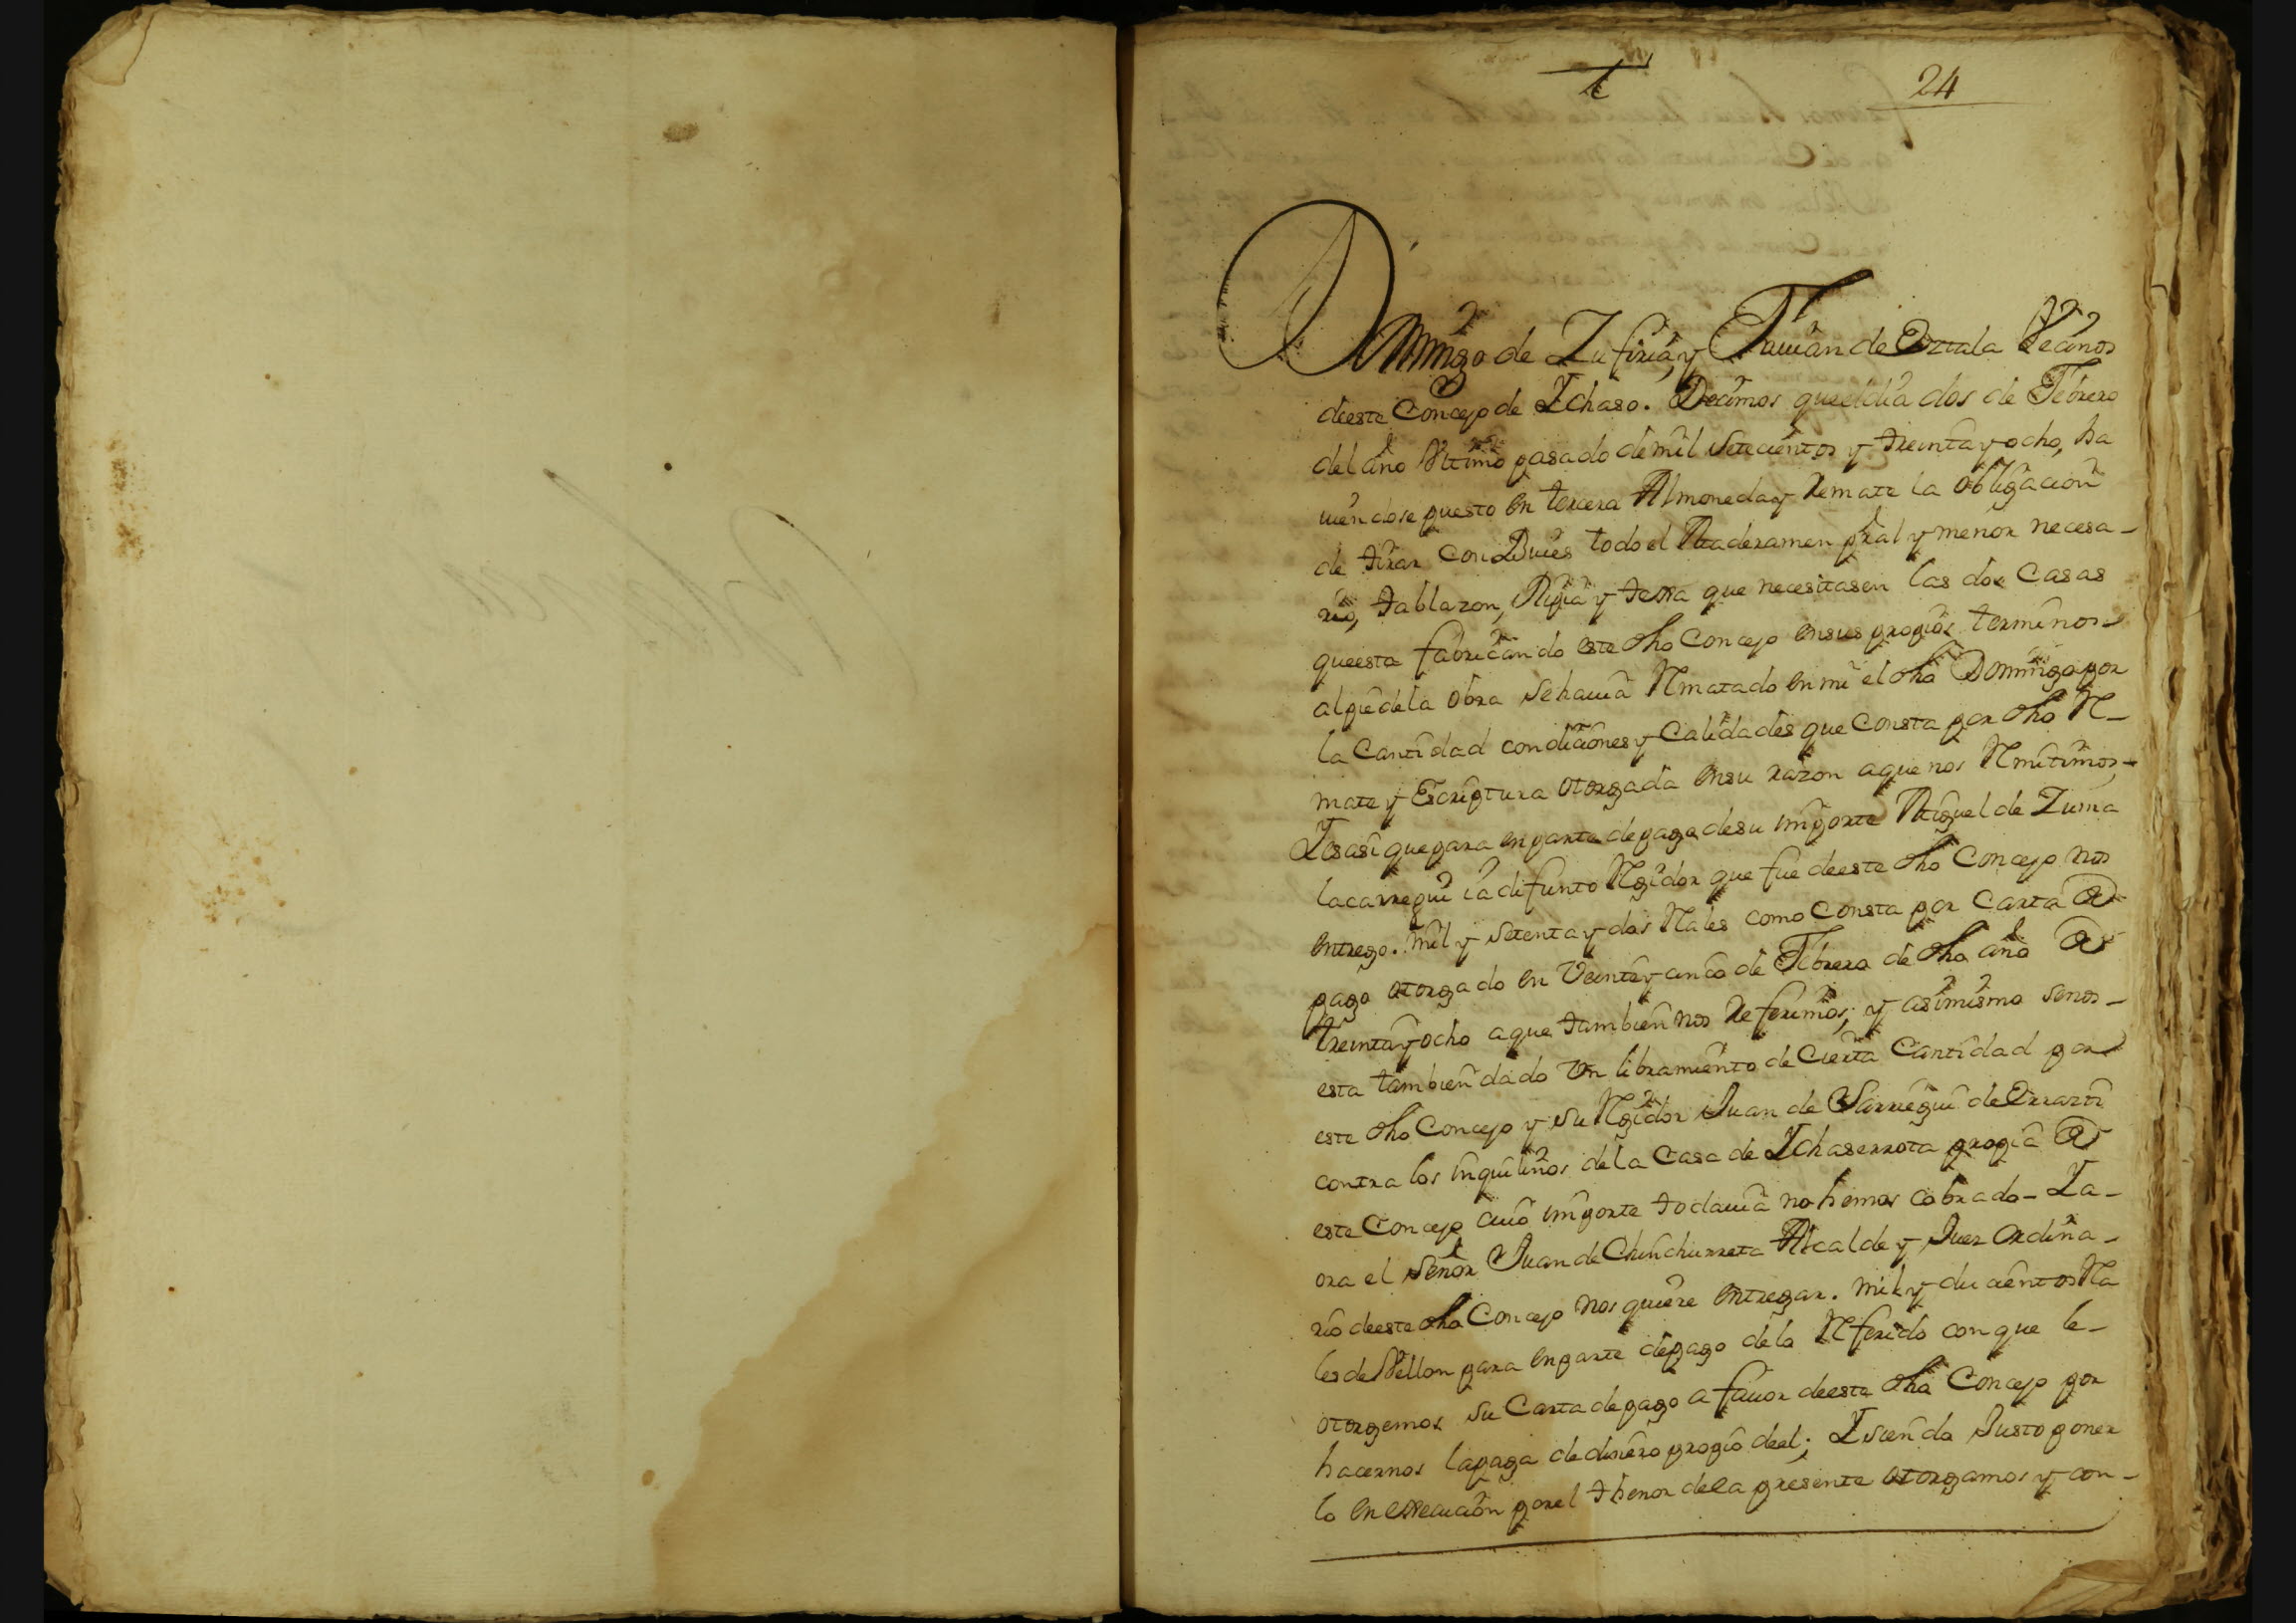 24
Domingo de Zufiria, y Juuan de Oziala Vecinos
deeste Concejo de Ychaso. Decimos que el dia dos de Febrero
del año Vltimo pasado de mil Setecientos y treinta y ocho, ha
uiendose puesto en tercera Almoneda y Remate la obligacion
de tirar con Bueies todo el Maderamen pral y menor necesa-
rio, tablazon, Ripia y texa que necesitasen las dos Casas
que esta fabricando este dho Concejo en sus propios terminos
al pie de la obra se hauia Rematado en mi el dho Domingo por
la Cantidad condiciones y Calidades que Consta por dho Re-
mate y Escriptura otorgada en su razon a que nos Remitimos,
Y es asi que para en parte de pago de su importe Miguel de Zuma
lacarregui ia difunto Regidor que fue deeste dho Concejo nos
entrego. mil y setenta y dos Reales como Consta por Carta de
pago otorgado en Veinte y cinco de Febrero de dho año de
treinta y ocho a que tambien nos Referimos; y asimismo se nos
esta tambien dado Vn libramiento de Cierta Cantidad por
este dho Concejo y su Regidor Juan de Sarriegui de Errazti
contra los inquilinos de la Casa de Ychaserrota propia de
este Concejo cuio importe todauia no hemos cobrado- Ya-
ora el Señor Juan de Chinchurreta Alcalde y Juez ordina-
rio deeste dho Concejo nos quiere entregar. mil y du cientos Rea
les de Vellon para en parte de pago de lo Referido con que le-
otorgemos su Carta de pago a fauor deeste dho Concejo por
hacernos la paga de dinero propio deel; Y siendo Justo poner
lo en execucion por el thenor de la presente otorgamos y con-